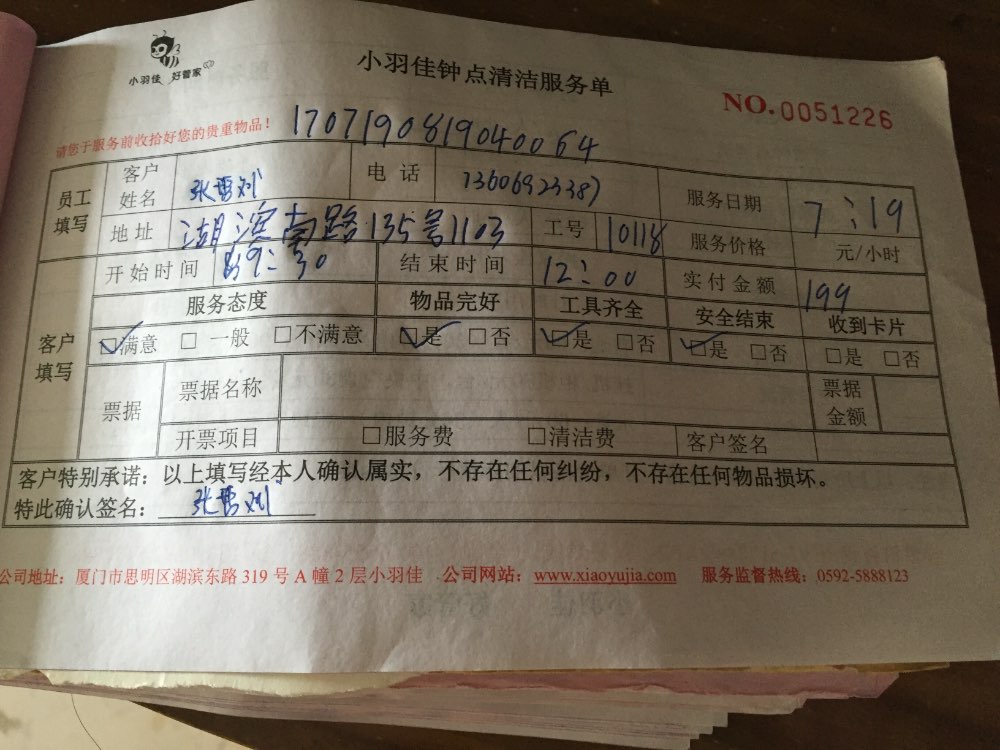 小羽佳 好管家
小羽佳钟点清洁服务单
NO.0051226
请您于服务前收拾好您的贵重物品!
1707190819040064
员工填写 客户姓名 电话 13606923387 服务日期 7:19
地址 湖滨南路135号1103 工号 10118 服务价格 元/小时
开始时间 9:30 结束时间 12:00 实付金额 199
客户填写 服务态度 物品完好 工具齐全 安全结束 收到卡片
☑满意 □一般 □不满意 ☑是 □否 ☑是 □否 ☑是 □否 □是 □否
票据 票据名称 票据金额
开票项目 □服务费 □清洁费 客户签名
客户特别承诺：以上填写经本人确认属实，不存在任何纠纷，不存在任何物品损坏。
特此确认签名：
公司地址：厦门市思明区湖滨东路 319 号 A 幢 2 层小羽佳 公司网站：www.xiaoyujia.com 服务监督热线：0592-5888123